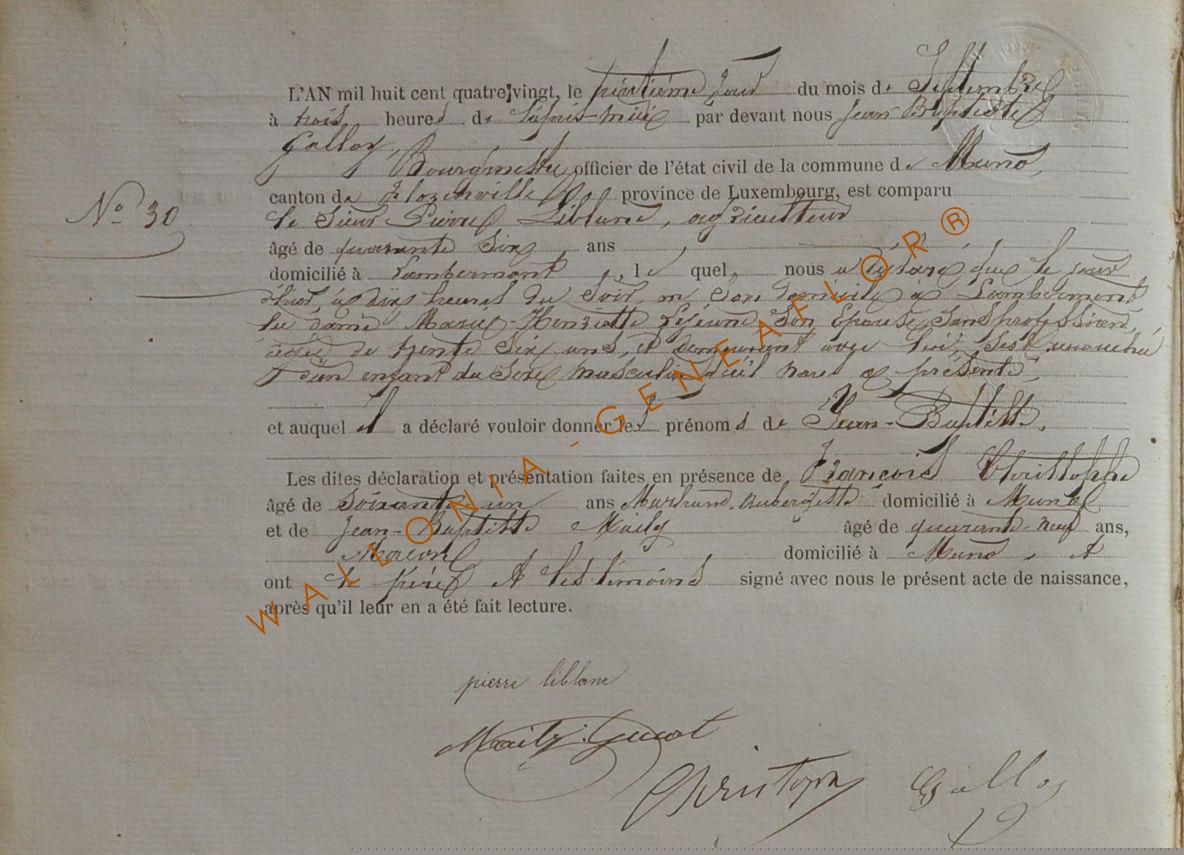 L'AN mil huit cent quatre-vingt, le trentième jour du mois de Septembre
à trois heures de l'après-midi par devant nous Jean Baptiste
Galloy,
Bourgmestre officier de l'état civil de la commune de Muno,
canton de Florenville province de Luxembourg, est comparu
N° 30
le Sieur Pierre Liblanc, agriculteur
âgé de quarante six ans
domicilié à Lambermont, lequel nous a déclaré que le jour
d'hier à dix heures du Soir, en Son domicile à Lambermont
la dame Marie-Henriette Lejeune Son Epouse, Sans profession
âgée de trente Six ans, et demeurant avec lui, s'est accouchée
d'un enfant du Sexe masculin qu'il nous a présenté,
et auquel il a déclaré vouloir donner les prénoms de Jean-Baptiste.
Les dites déclaration et présentation faites en présence de François Christophe
âgé de Soixante un ans Marchand Aubergiste domicilié à Muno
et de Jean-Baptiste Maily âgé de quarante-neuf ans,
Maçon domicilié à Muno, et
ont le père et les témoins signé avec nous le présent acte de naissance,
après qu'il leur en a été fait lecture.
pierre liblanc
Christophe Galloy
WALLONIA-GENEAFLOR®